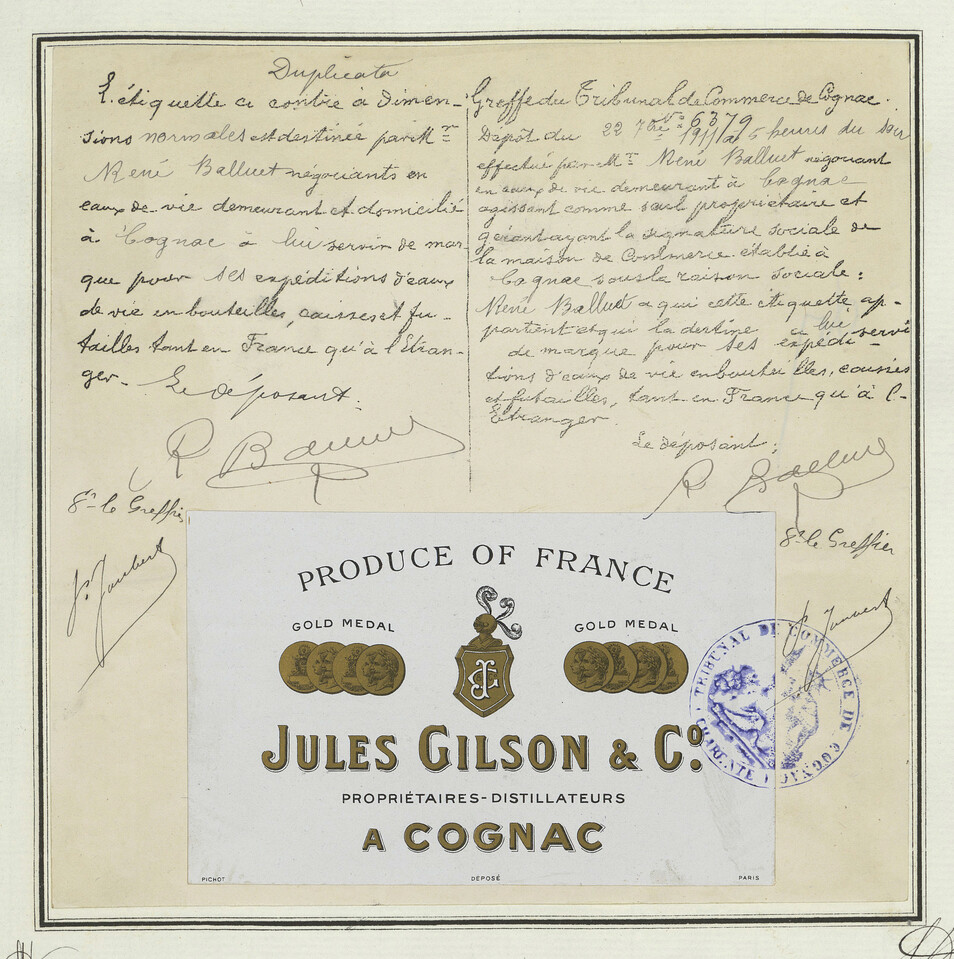 Duplicata
L'étiquette ci contre à dimen-
sions normales est destinée par Mr
René Balluet négociants en
eaux de vie demeurant et domicilié
à Cognac à lui servir de mar-
que pour ses expéditions d'eaux
de vie en bouteilles, caisses et fu-
tailles tant en France qu'à l'Etran-
ger. Le déposant :
R Balluet
Pr le Greffier
Greffe du Tribunal de Commerce de Cognac.
No 6379
Dépôt du 22 7bre 1911 à 5 heures du soir
effectué par Mr René Balluet négociant
en eaux de vie demeurant à Cognac
agissant comme seul propriétaire et
gérant ayant la signature sociale de
la maison de Commerce établie à
Cognac sous la raison sociale :
René Balluet a qui cette étiquette ap-
partient et qui la destine a lui servir
de marque pour ses expédi-
tions d'eaux de vie en bouteilles, caisses
et futailles, tant en France qu'à l'-
Etranger.
Le déposant :
R Balluet
Pr le Greffier
PRODUCE OF FRANCE
GOLD MEDAL
GOLD MEDAL
JULES GILSON & Co.
PROPRIÉTAIRES-DISTILLATEURS
A COGNAC
PICHOT
DÉPOSÉ
PARIS
TRIBUNAL DE COMMERCE DE COGNAC
CHARENTE